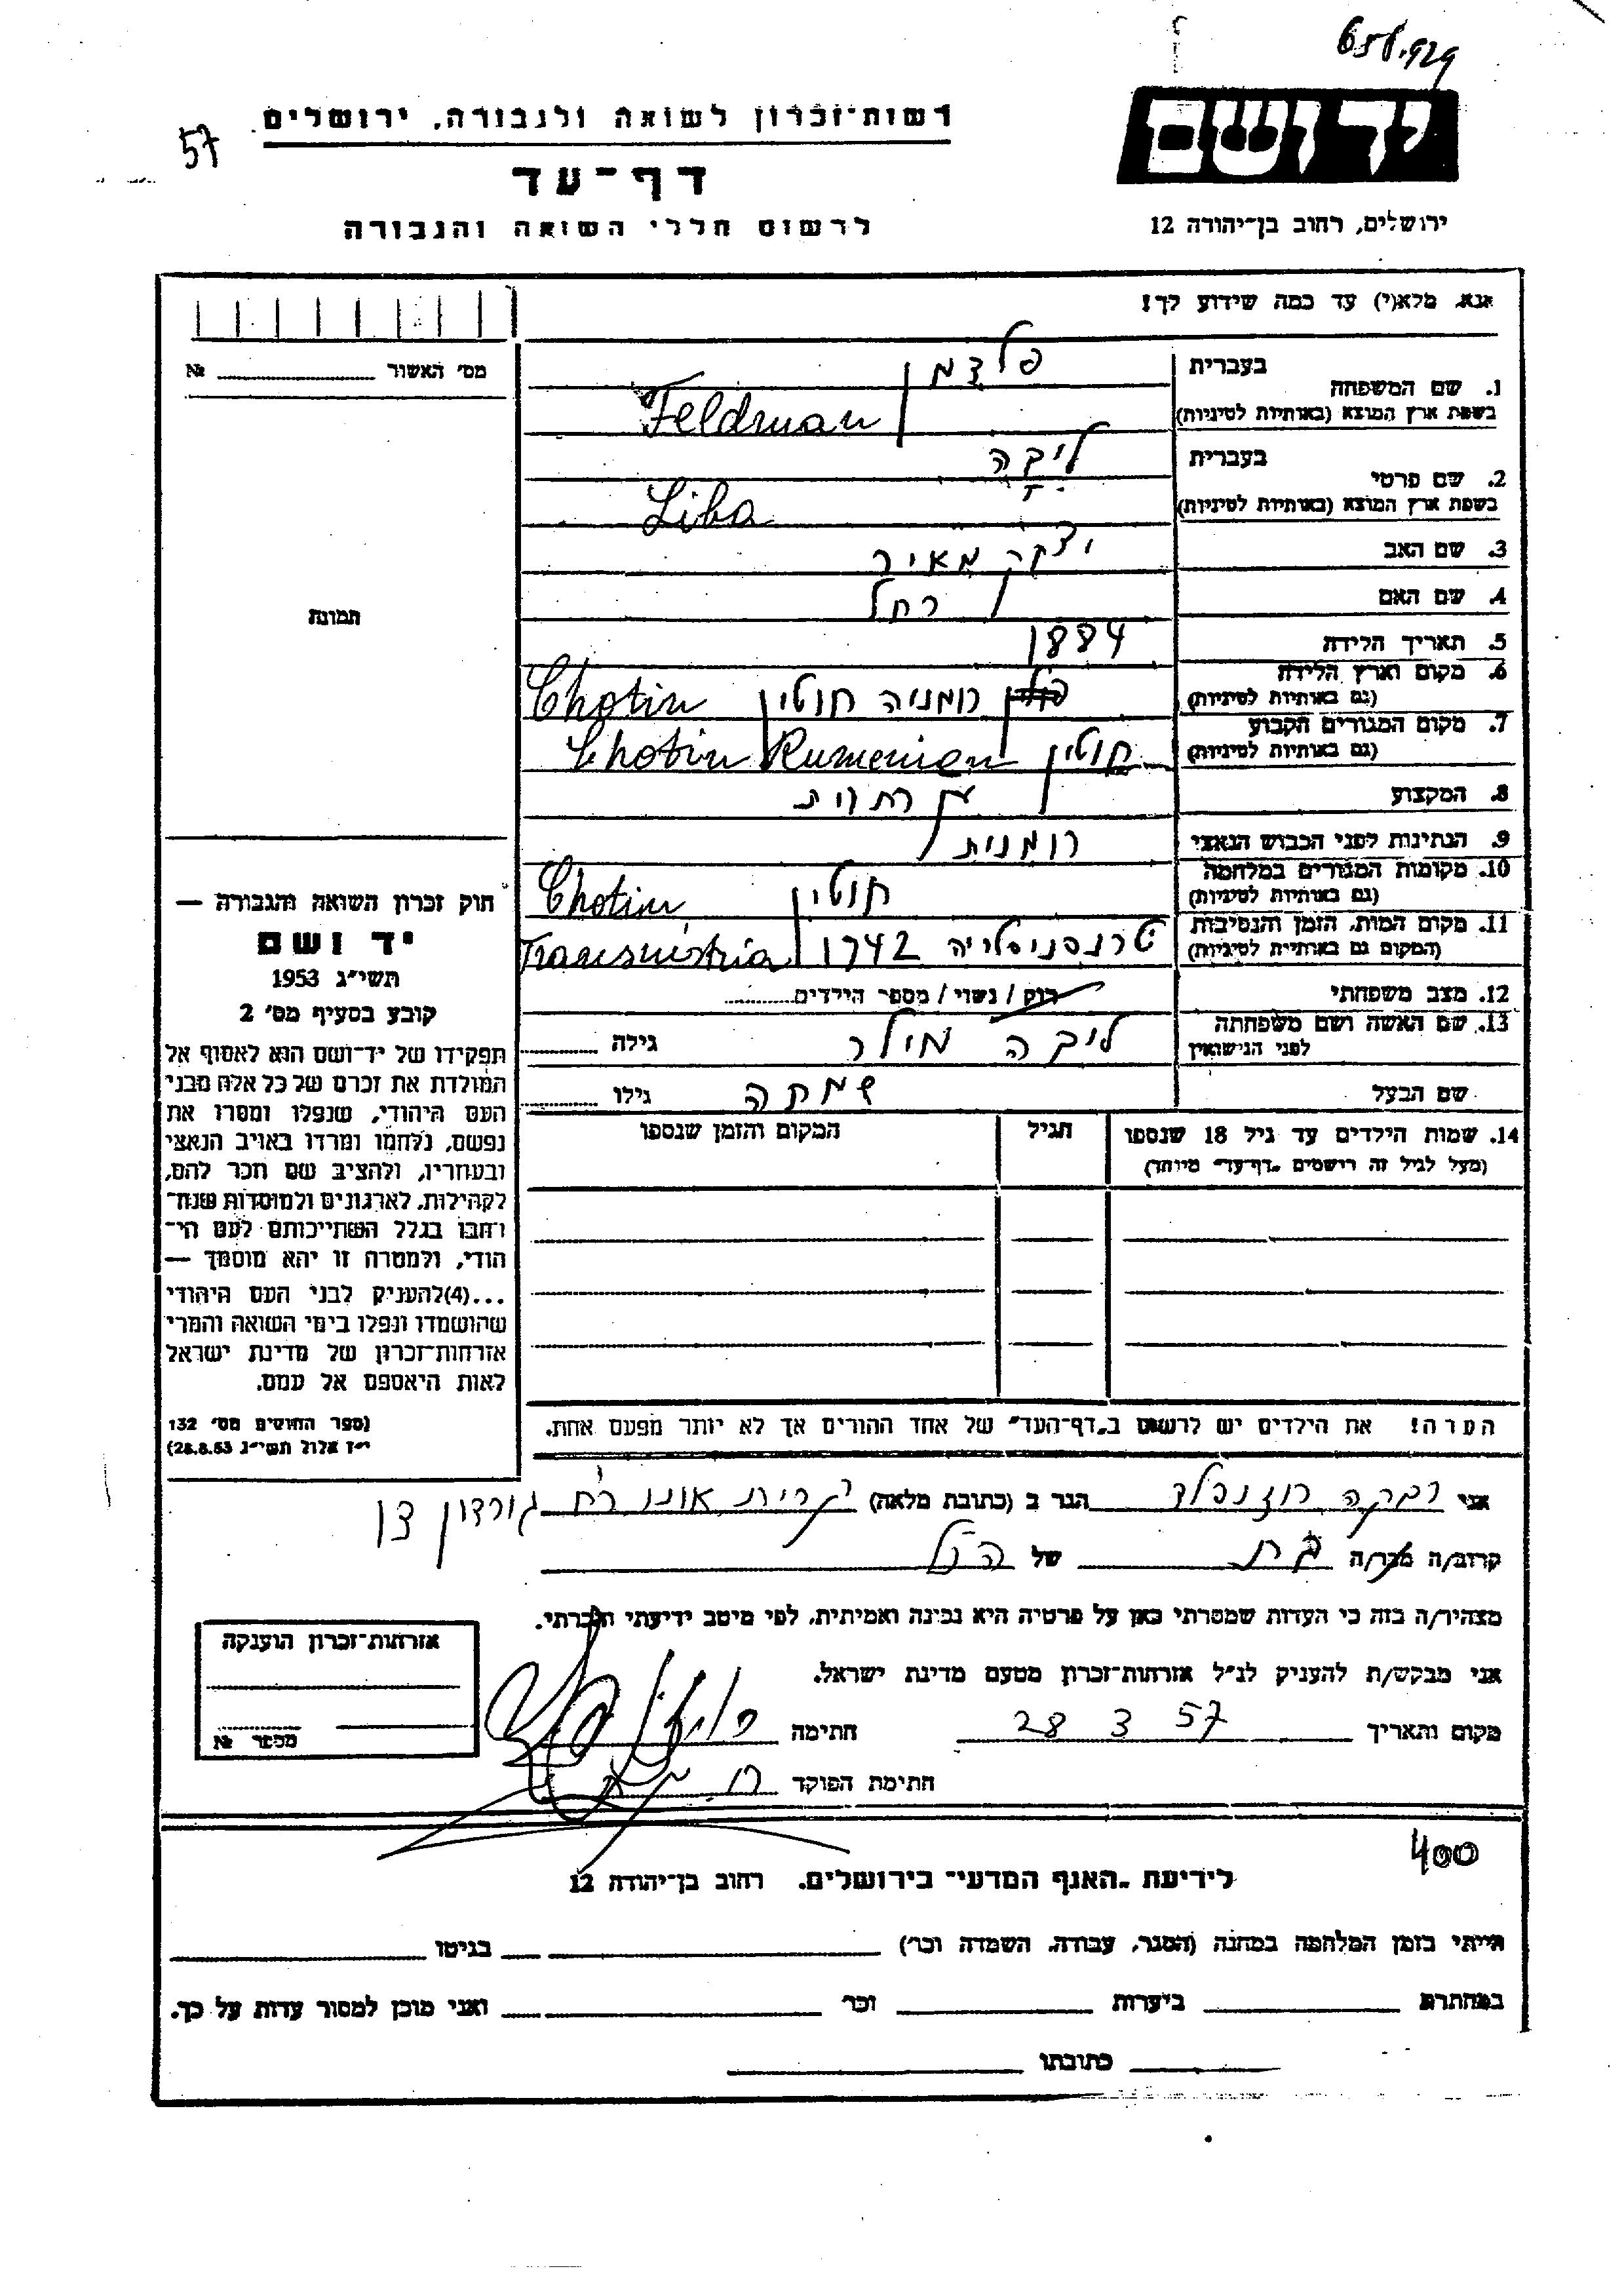 658.929
57
רשות־זכרון לשואה ולגבורה, ירושלים
יד ושם
דף־עד
לרשום חללי השואה והגבורה
ירושלים, רחוב בן־יהודה 12
אנא, מלא(י) עד כמה שידוע לך!
מס׳ האשור № ________
1. שם המשפחה
בעברית פלדמן
בשפת ארץ המוצא (באותיות לטיניות) Feldman
2. שם פרטי
בעברית ליבה
בשפת ארץ המוצא (באותיות לטיניות) Liba
3. שם האב יצחק מאיר
4. שם האם רחל
5. תאריך הלידה 1884
6. מקום וארץ הלידה (גם באותיות לטיניות) רומניה חוטין Chotin
7. מקום המגורים הקבוע (גם באותיות לטיניות) חוטין Chotin Rumenien
8. המקצוע
9. הנתינות לפני הכבוש הנאצי רומנית
10. מקומות המגורים במלחמה (גם באותיות לטיניות) חוטין Chotin
11. מקום המות, הזמן והנסיבות (המקום גם באותיות לטיניות) 1942 Transnistria
12. מצב משפחתי רוק / נשוי / מספר הילדים
13. שם האשה ושם משפחתה לפני הנישואין ליבה מילר גילה
שם הבעל שמחה גילו
14. שמות הילדים עד גיל 18 שנספו (מעל לגיל זה רושמים „דף־עד״ מיוחד)
הגיל
המקום והזמן שנספו
הערה! את הילדים יש לרשום ב„דף־העד״ של אחד ההורים אך לא יותר מפעם אחת.
תמונה
חוק זכרון השואה והגבורה —
יד ושם
תשי״ג 1953
קובע בסעיף מס׳ 2
תפקידו של יד־ושם הוא לאסוף אל
המולדת את זכרם של כל אלה מבני
העם היהודי, שנפלו ומסרו את
נפשם, נלחמו ומרדו באויב הנאצי
ובעוזריו, ולהציב שם וזכר להם,
לקהילות, לארגונים ולמוסדות שנח־
רבו בגלל השתייכותם לעם הי־
הודי, ולמטרה זו יהא מוסמך —
...(4)להעניק לבני העם היהודי
שהושמדו ונפלו בימי השואה והמרי
אזרחות־זכרון של מדינת ישראל
לאות היאספם אל עמם.
(ספר החוקים מס׳ 132
י״ז אלול תשי״ג 28.8.53)
אני רבקה רוזנפלד הגר ב (כתובת מלאה) קרית אונו רח׳ גורדון
קרוב/ה מכר/ה בת של הנ״ל
מצהיר/ה בזה כי העדות שמסרתי כאן על פרטיה היא נכונה ואמיתית, לפי מיטב ידיעתי והכרתי.
אני מבקש/ת להעניק לנ״ל אזרחות־זכרון מטעם מדינת ישראל.
מקום ותאריך 28 3 57 חתימה
חתימת הפוקד
אזרחות־זכרון הוענקה
מספר №
400
לידיעת „האגף המדעי״ בירושלים, רחוב בן־יהודה 12
הייתי בזמן המלחמה במחנה (הסגר, עבודה, השמדה וכו׳) ________ בגיטו ________
במחתרת ________ ביערות ________ וכו׳ ________ ואני מוכן למסור עדות על כך.
________ כתובתו ________